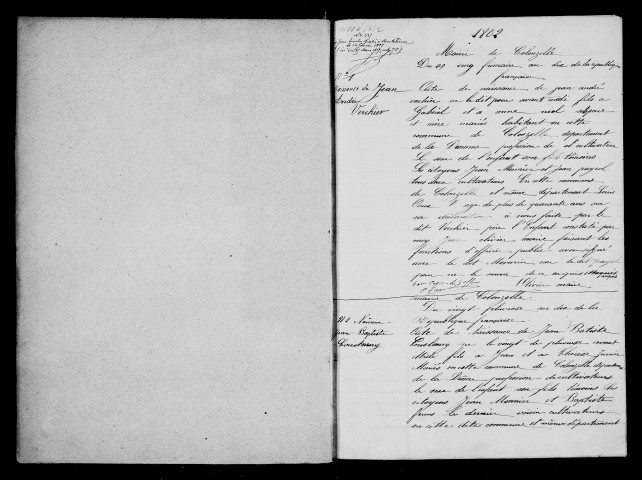 1802
Mairie de Colonzelle
Du vingt frimaire an dix de la république
française
N° 1
Naissance de Jean
André
Verchier
Acte de naissance de jean andré
verchier né le dit jour avant midi fils à
Gabriel et à anne
et mère mariés habitant en cette
commune de Colonzelle département
de la Drome profession de cultivateur
Le sexe de l'enfant son fils témoins
Les citoyens Jean Monier et jean payrol
tous deux cultivateurs En cette commune
de Colonzelle et même département
l'age de plus de quarante ans sur
sa déclaration à nous faite par le
dit Verchier père l'Enfant constaté par
moy Jean olivier maire faisant les
fonctions d'officier public avons signé
avec le dit Monnier non le dit payrol
pour ne le savoir de ce requis
Olivier maire
mairie de Colonzelle
Du vingt pluviose an dix de la
République française
N° 2 Naissance
Jean Baptiste
Acte de naissance de Jean Batiste
né le vingt de pluviose avant
Midi fils à Jean et à Therese
Mariés en cette commune de Colonzelle département
de la Drôme profession de cultivateurs
le sexe de l'enfant son fils témoins Les
citoyens Jean Monnier et Baptiste
le dernier voisin cultivateurs
en cette dite commune et même département